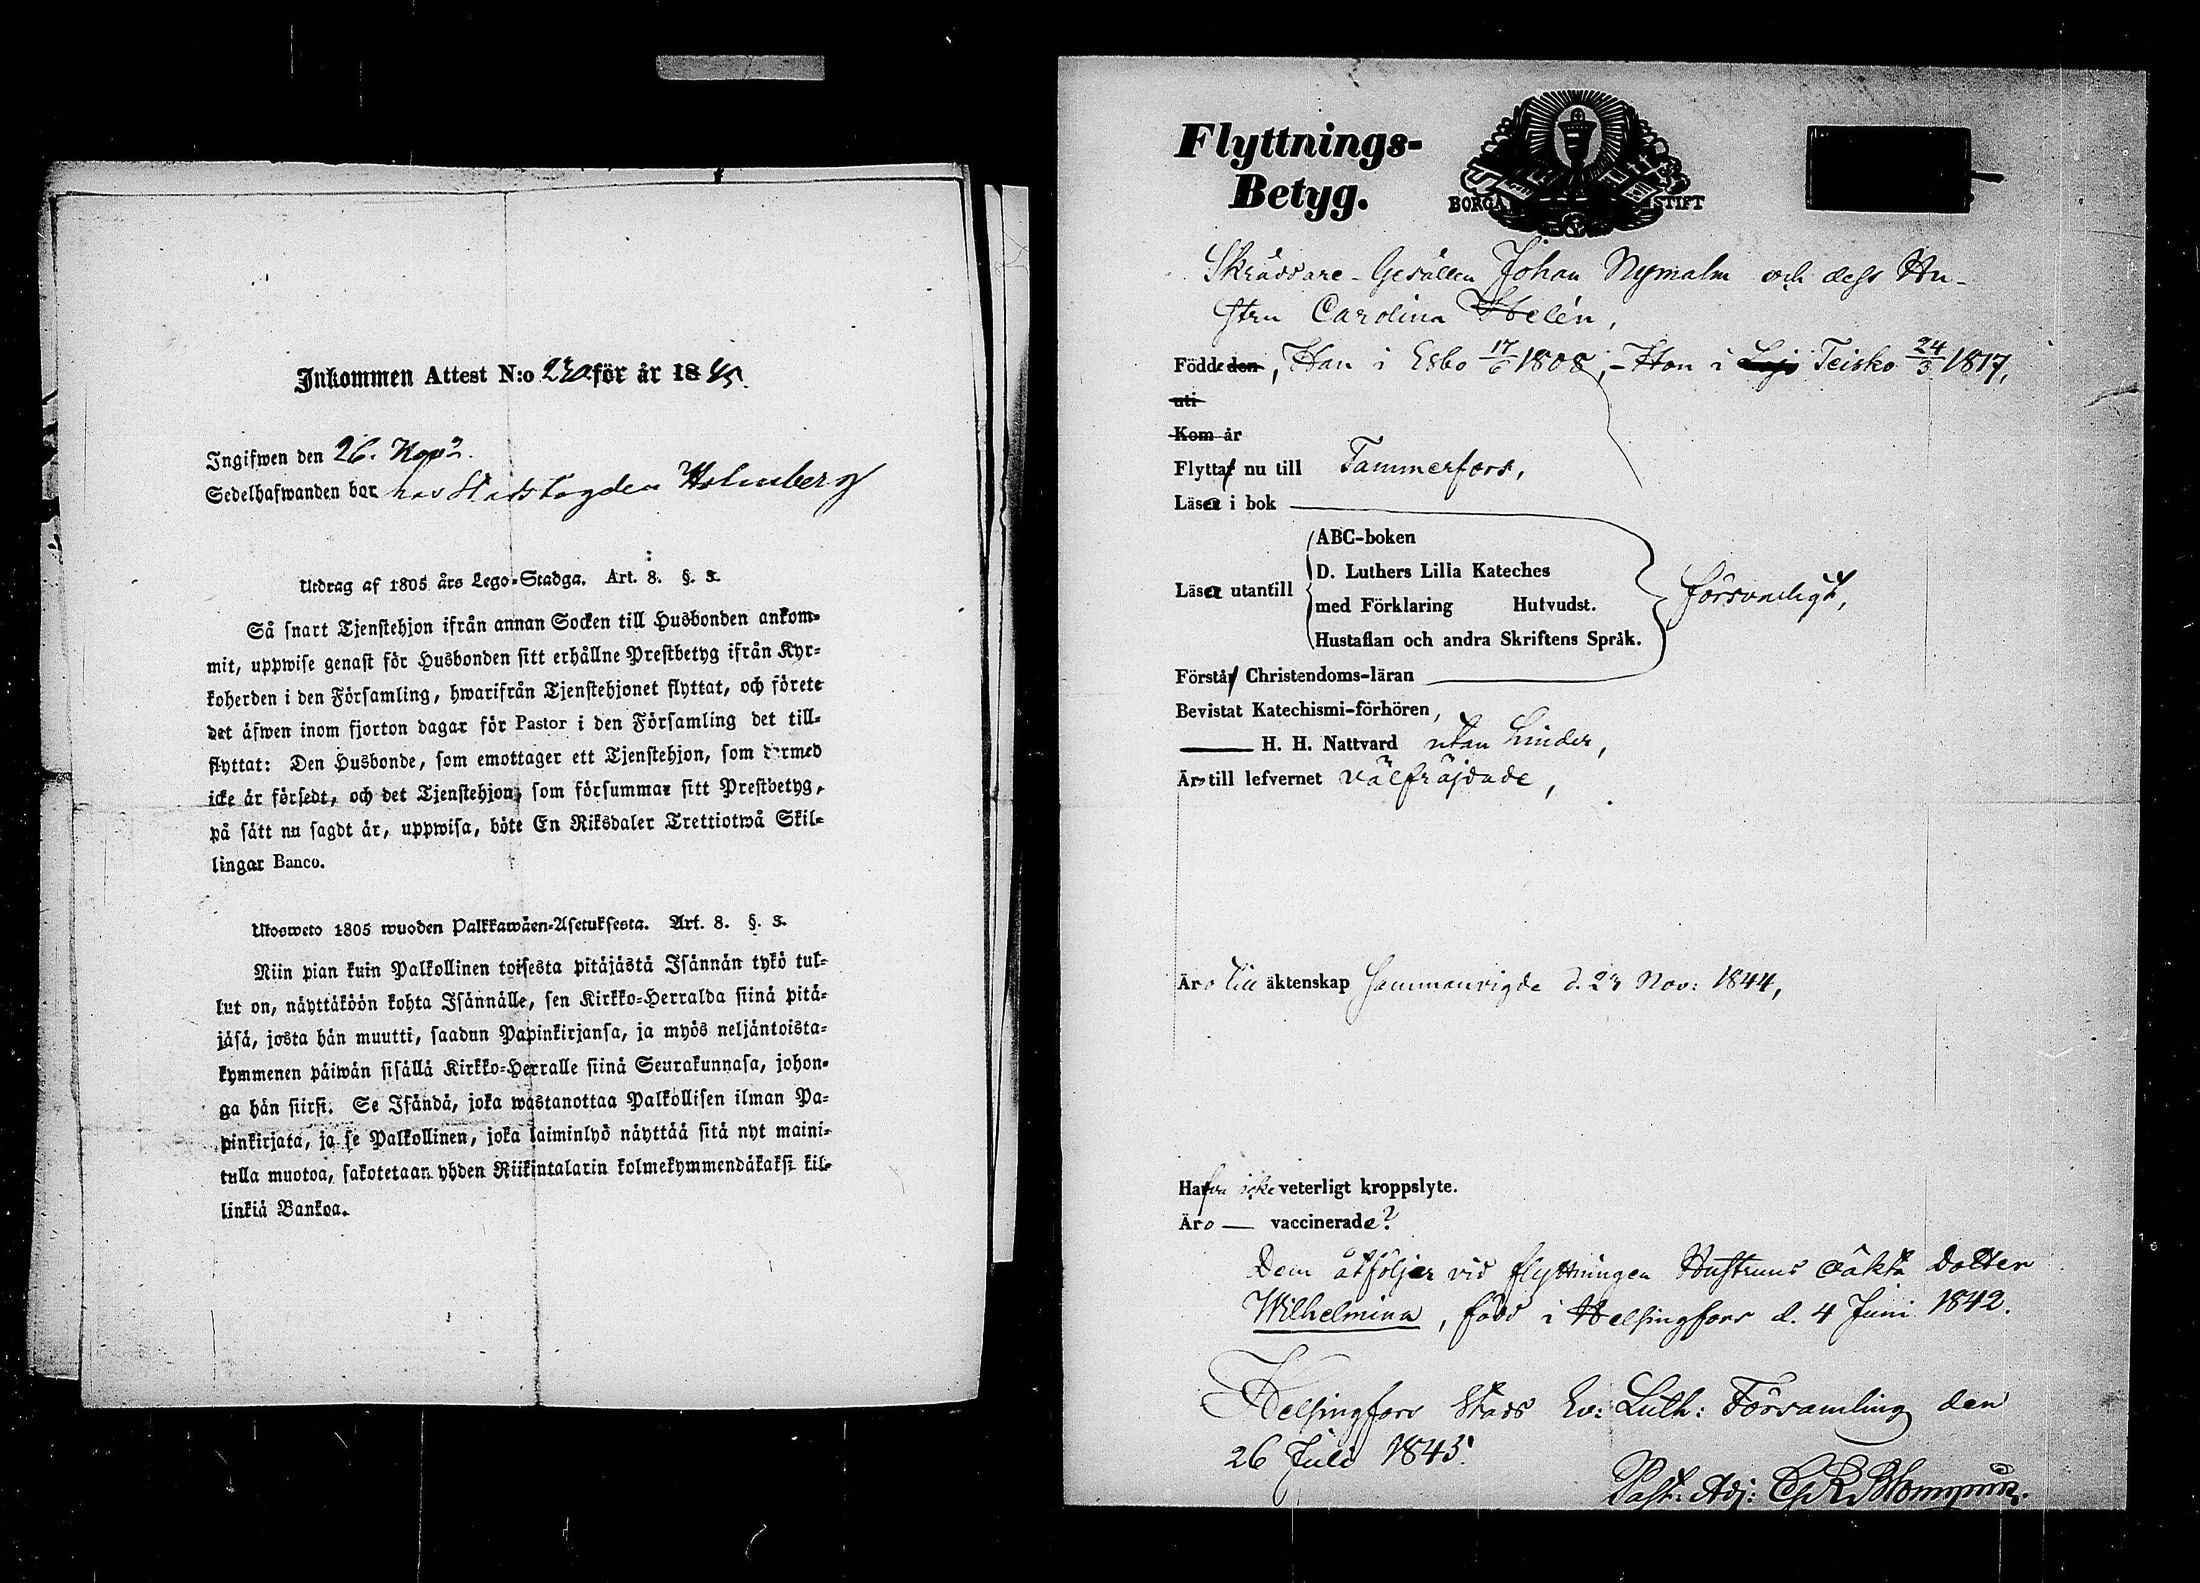 Inkommen Attest N:o 230 för år 1845.
Ingifwen den 26.
Sedelhafwanden bor hos Stadsfogden Holmberg
Utdrag af 1805 års Lego-Stadga. Art. 8. §. 3.
Så snart Tjenstehjon ifrån annan Socken till Husbonden ankom-
mit, uppwise genast för Husbonden sitt erhållne Prestbetyg ifrån Kyr-
koherden i den Församling, hwarifrån Tjenstehjonet flyttat, och förete
det äfwen inom fjorton dagar för Pastor i den Församling det till-
flyttat: Den Husbonde, som emottager ett Tjenstehjon, som dermed
icke är försedt, och det Tjenstehjon, som försummar sitt Prestbetyg,
på sätt nu sagdt är, uppwisa, böte En Riksdaler Trettiotwå Skil-
lingar Banco.
Ulosweto 1805 wuoden Palkkawäen-Asetuksesta. Art. 8. §. 3.
Niin pian kuin Palkollinen toisesta pitäjästä Isännän tykö tul-
lut on, näyttäköön kohta Isännälle, sen Kirkko-Herralda siinä pitä-
jäsä, josta hän muutti, saadun Papinkirjansa, ja myös neljäntoista-
kymmenen päiwän sisällä Kirkko-Herralle siinä Seurakunnasa, johon-
ga hän siirsi. Se Isändä, joka wastanottaa Palkollisen ilman Pa-
pinkirjata, ja se Palkollinen, joka laiminlyö näyttää sitä nyt maini-
tulla muotoa, sakotetaan yhden Riikintalarin kolmekymmendäkaksi kil-
linkiä Bankoa.
Flyttnings-
Betyg.
BORGÅ STIFT
Skräddare-Gesällen Johan Nymalm och dess Hu-
stru Carolina Helén,
Födde den, Han i Esbo 17/6 1808, - Hon i Teisko 24/3 1817,
uti
Kom år
Flytta nu till Tammerfors,
Läsa i bok
ABC-boken
D. Luthers Lilla Kateches
Läsa utantill
med Förklaring Hufvudst.
försvarligt,
Hustaflan och andra Skriftens Språk.
Förstå Christendoms-läran
Bevistat Katechismi-förhören,
H. H. Nattvard utan hinder,
Äro till lefvernet välfräjdade,
Äro till äktenskap sammanvigde d. 23 Nov: 1844,
Hafva icke veterligt kroppslyte.
Äro — vaccinerade?
Dem åtföljer vid flyttningen Hustruns oäkta dotter
Wilhelmina, född i Helsingfors d. 4 Juni 1842.
Helsingfors Stads Ev: Luth: Församling den
26 Juli 1845.
Past: Adj: